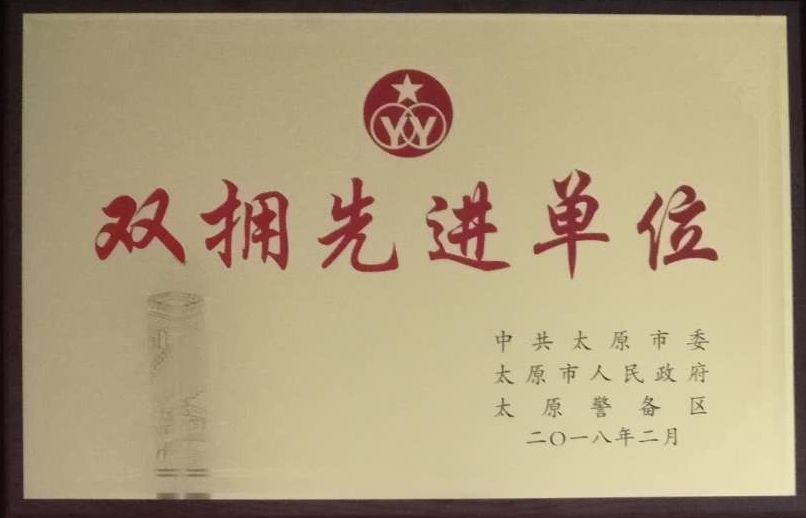 YY
双拥先进单位
中共太原市委
太原市人民政府
太原警备区
二〇一八年二月